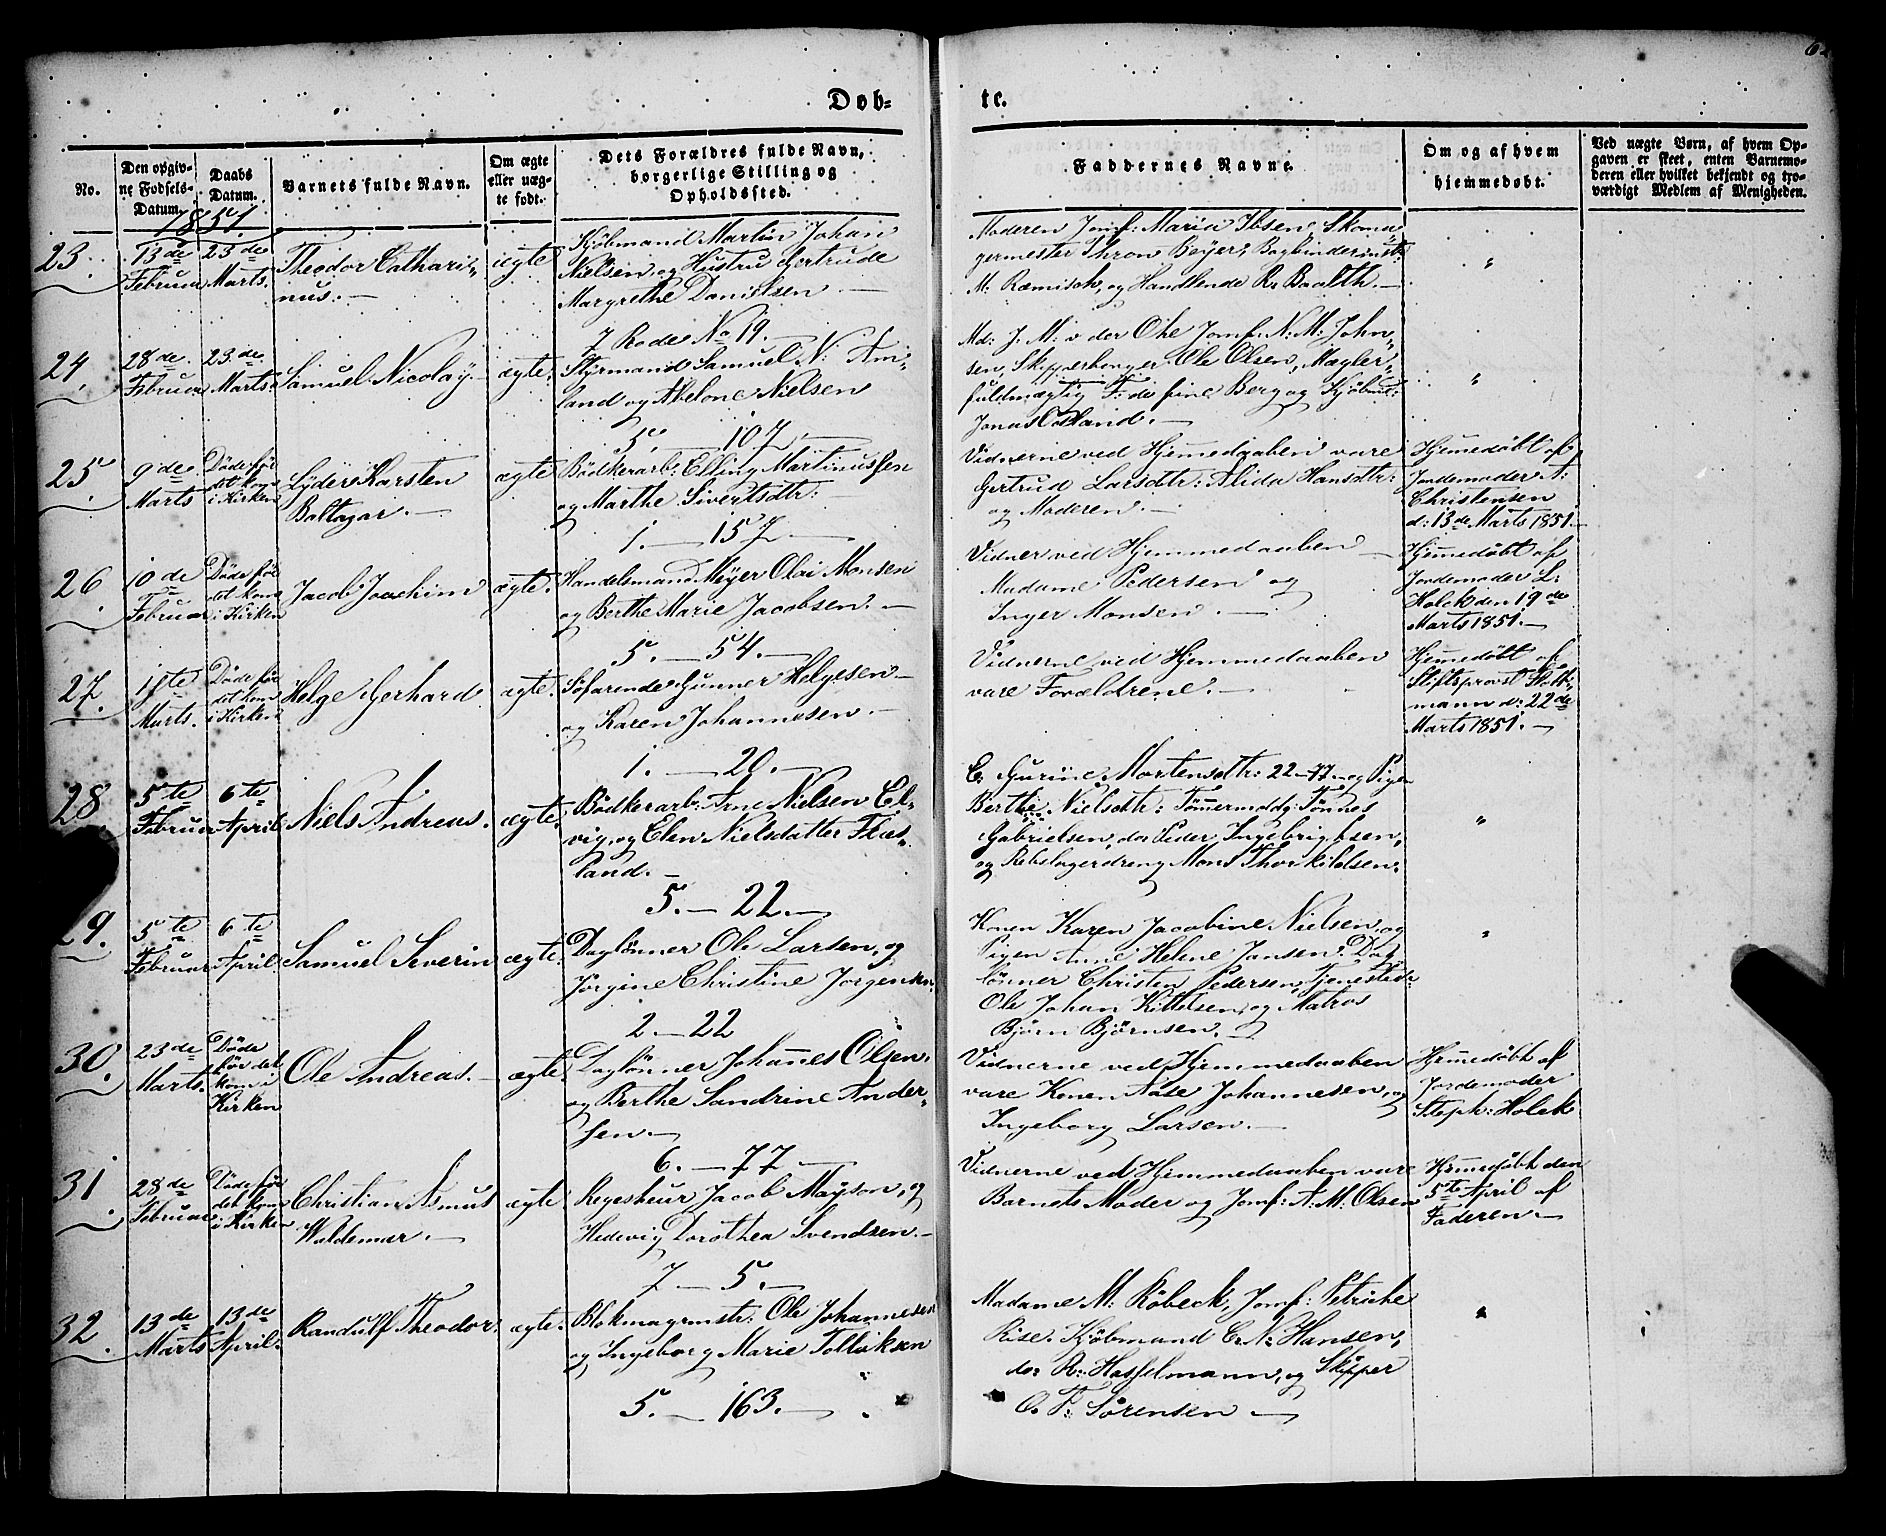 Døb=
te.
No.
Den opgiv-
ne Fødsels-
Datum.
Daabs
Datum.
Barnets fulde Navn.
Om ægte
eller uæg-
te født.
Dets Forældres fulde Navn,
borgerlige Stilling og
Opholdssted.
Faddernes Navne.
Om og af hvem
hjemmedøbt.
Ved uægte Børn, af hvem Op-
gaven er skeet, enten Barnemo-
deren eller hvilket bekjendt og tro-
værdigt Medlem af Menigheden.
1851.
23.
13de
Februar
23de
Marts.
Theodor Cathari-
nus.
ægte
Kjøbmand Martin Johan
Nielsen, og Hustru Gertrude
Margrethe Danielsen
7 Rode No 19.
Moderen Jomf: Maria Ibsen, Skoma-
germester Thron Beyer, Bogbindermstr:
M: Ræmisch, og Handlende R: Baalth.
24.
28de
Februar
23de
Marts.
Samuel Nicolaÿ.
ægte.
Styrmand Samuel N: Am-
land og Abelone Nielsen
5. 107
Md: J. M: v der Ohe Jomf: N. M: John-
sen, Skipperborger Ole Olsen, Mægler-
fuldmægtig F: de fine Berg og Kjøbmd:
Jonas
25.
9de
Marts
Døde før
det kom
i Kirken
Lyder Karsten
Baltazar.
ægte
Bødkerarb: Elling Martinussen
og Marthe Sivertsdtr:
1. 157
Vidnerne ved Hjemmedaaben vare
Gertrud Larsdtr: Alida Hansdtr:
og Moderen.
Hjemmedøbt af
Jordemoder A:
Christensen
d: 13de Marts 1851.
26.
10de
Februar
Døde før
det kom
i Kirken
Jacob Joachim
ægte.
Handelsmand Meÿer Olai Monsen
og Berthe Marie Jacobsen.
5. 54.
Vidner ved Hjemmedaaben
Madame Pedersen og
Inger Monsen.
Hjemmedøbt af
Jordemoder L:
Holck den 19de
Marts 1851.
27.
11te
Marts.
Døde før
det kom
i Kirken
Helge Gerhard.
ægte.
Søfarende Gunner Helgesen
og Karen Johannesen.
1. 20.
Vidnerne ved Hjemmedaaben
vare Forældrene.
Hjemmedøbt af
Stiftsprovst Stolt-
mann d: 22de
Marts 1851.
28.
5te
Februar
6te
April
Niels Andreas.
ægte.
Bødkerarb: Arne Nielsen El-
vig, og Elen Nielsdatter Flas-
land.
5. 22.
C: Gurine Mortensdtr: 22-77- og Pigen
Berthe Nielsdtr: Tømmermdg: Tønnes
Gabrielsen, do: Peder Ingebrigtsen,
og Rebslagerdreng Mons Thorkildsen.
29.
5te
Februar
6te
April
Samuel Severin
ægte.
Daglønner Ole Larsen, og
Jørgine Christine Jørgensen.
2. 22
Konen Karen Jacobine Nielsen, og
Pigen Anne Helene Jansen. Dag-
lønner Christen Pedersen, Tjenestedr:
Ole Johan Kittelsen, og Matros
Bjørn Bjørnsen.
30.
23de
Marts.
Døde
før det
kom i
Kirken
Ole Andreas.
ægte.
Daglønner Johannes Olsen.
og Berthe Sandrine Ander-
sen.
6. 77
Vidnerne ved Hjemmedaaben
vare Konen Aase Johannesen, og
Ingeborg Larsen.
Hjemmedøbt af
Jordemoder
Steph: Holck
31.
28de
Februar
Døde før
det kom
i Kirken
Christian Asmus
Waldemar.
ægte.
Jacob Maÿson, og
Hedevig Dorothea Svendsen.
7 5.
Vidnerne ved Hjemmedaaben vare
Barnets Moder og Jomf: A: M: Olsen
Hjemmedøbt den
5te April af
Faderen.
32.
13de
Marts
13de
April.
Randulf Theodor.
ægte.
Blokmagermstr: Ole Johannesen
og Ingeborg Marie Tollisksen
5. 163.
Madame M: Røbeck, Jomf: Petriche
Rise. Kjøbmand C. N: Hansen,
do: R: Hasselmann, og Skipper
O. T: Sørensen